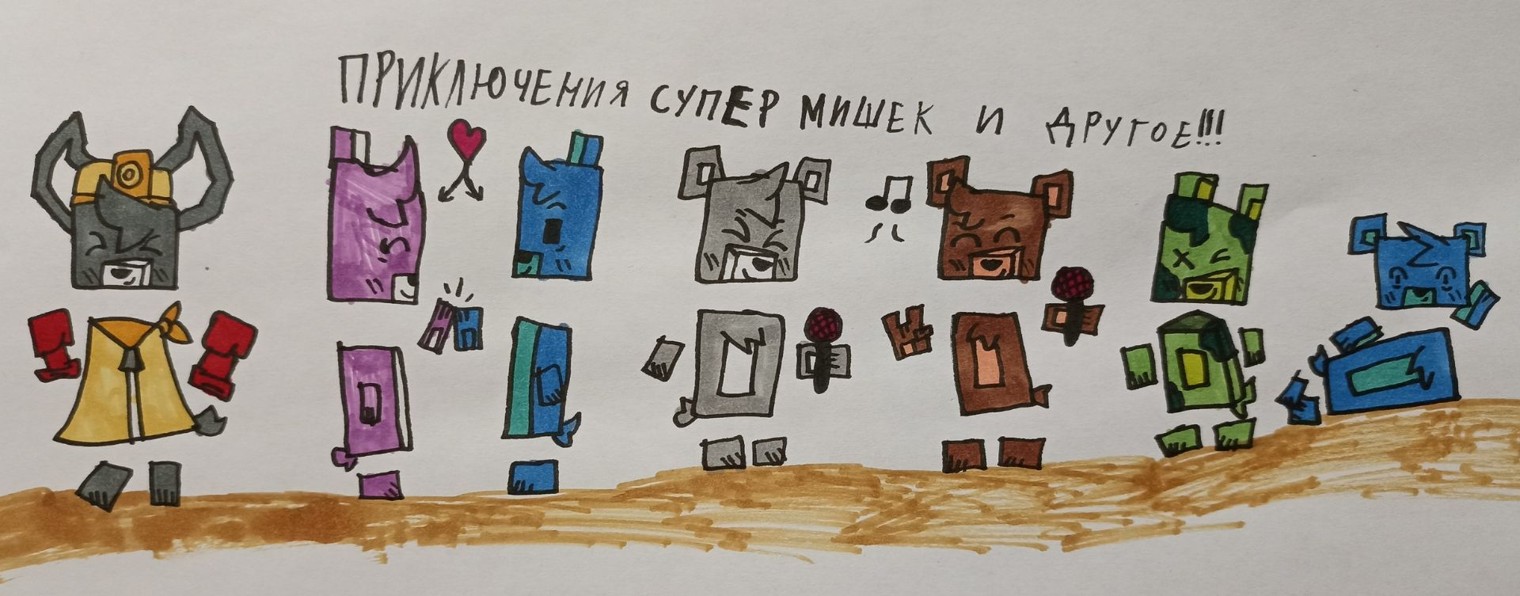 ПРИКЛЮЧЕНИЯ СУПЕР МИШЕК И ДРУГОЕ!!!